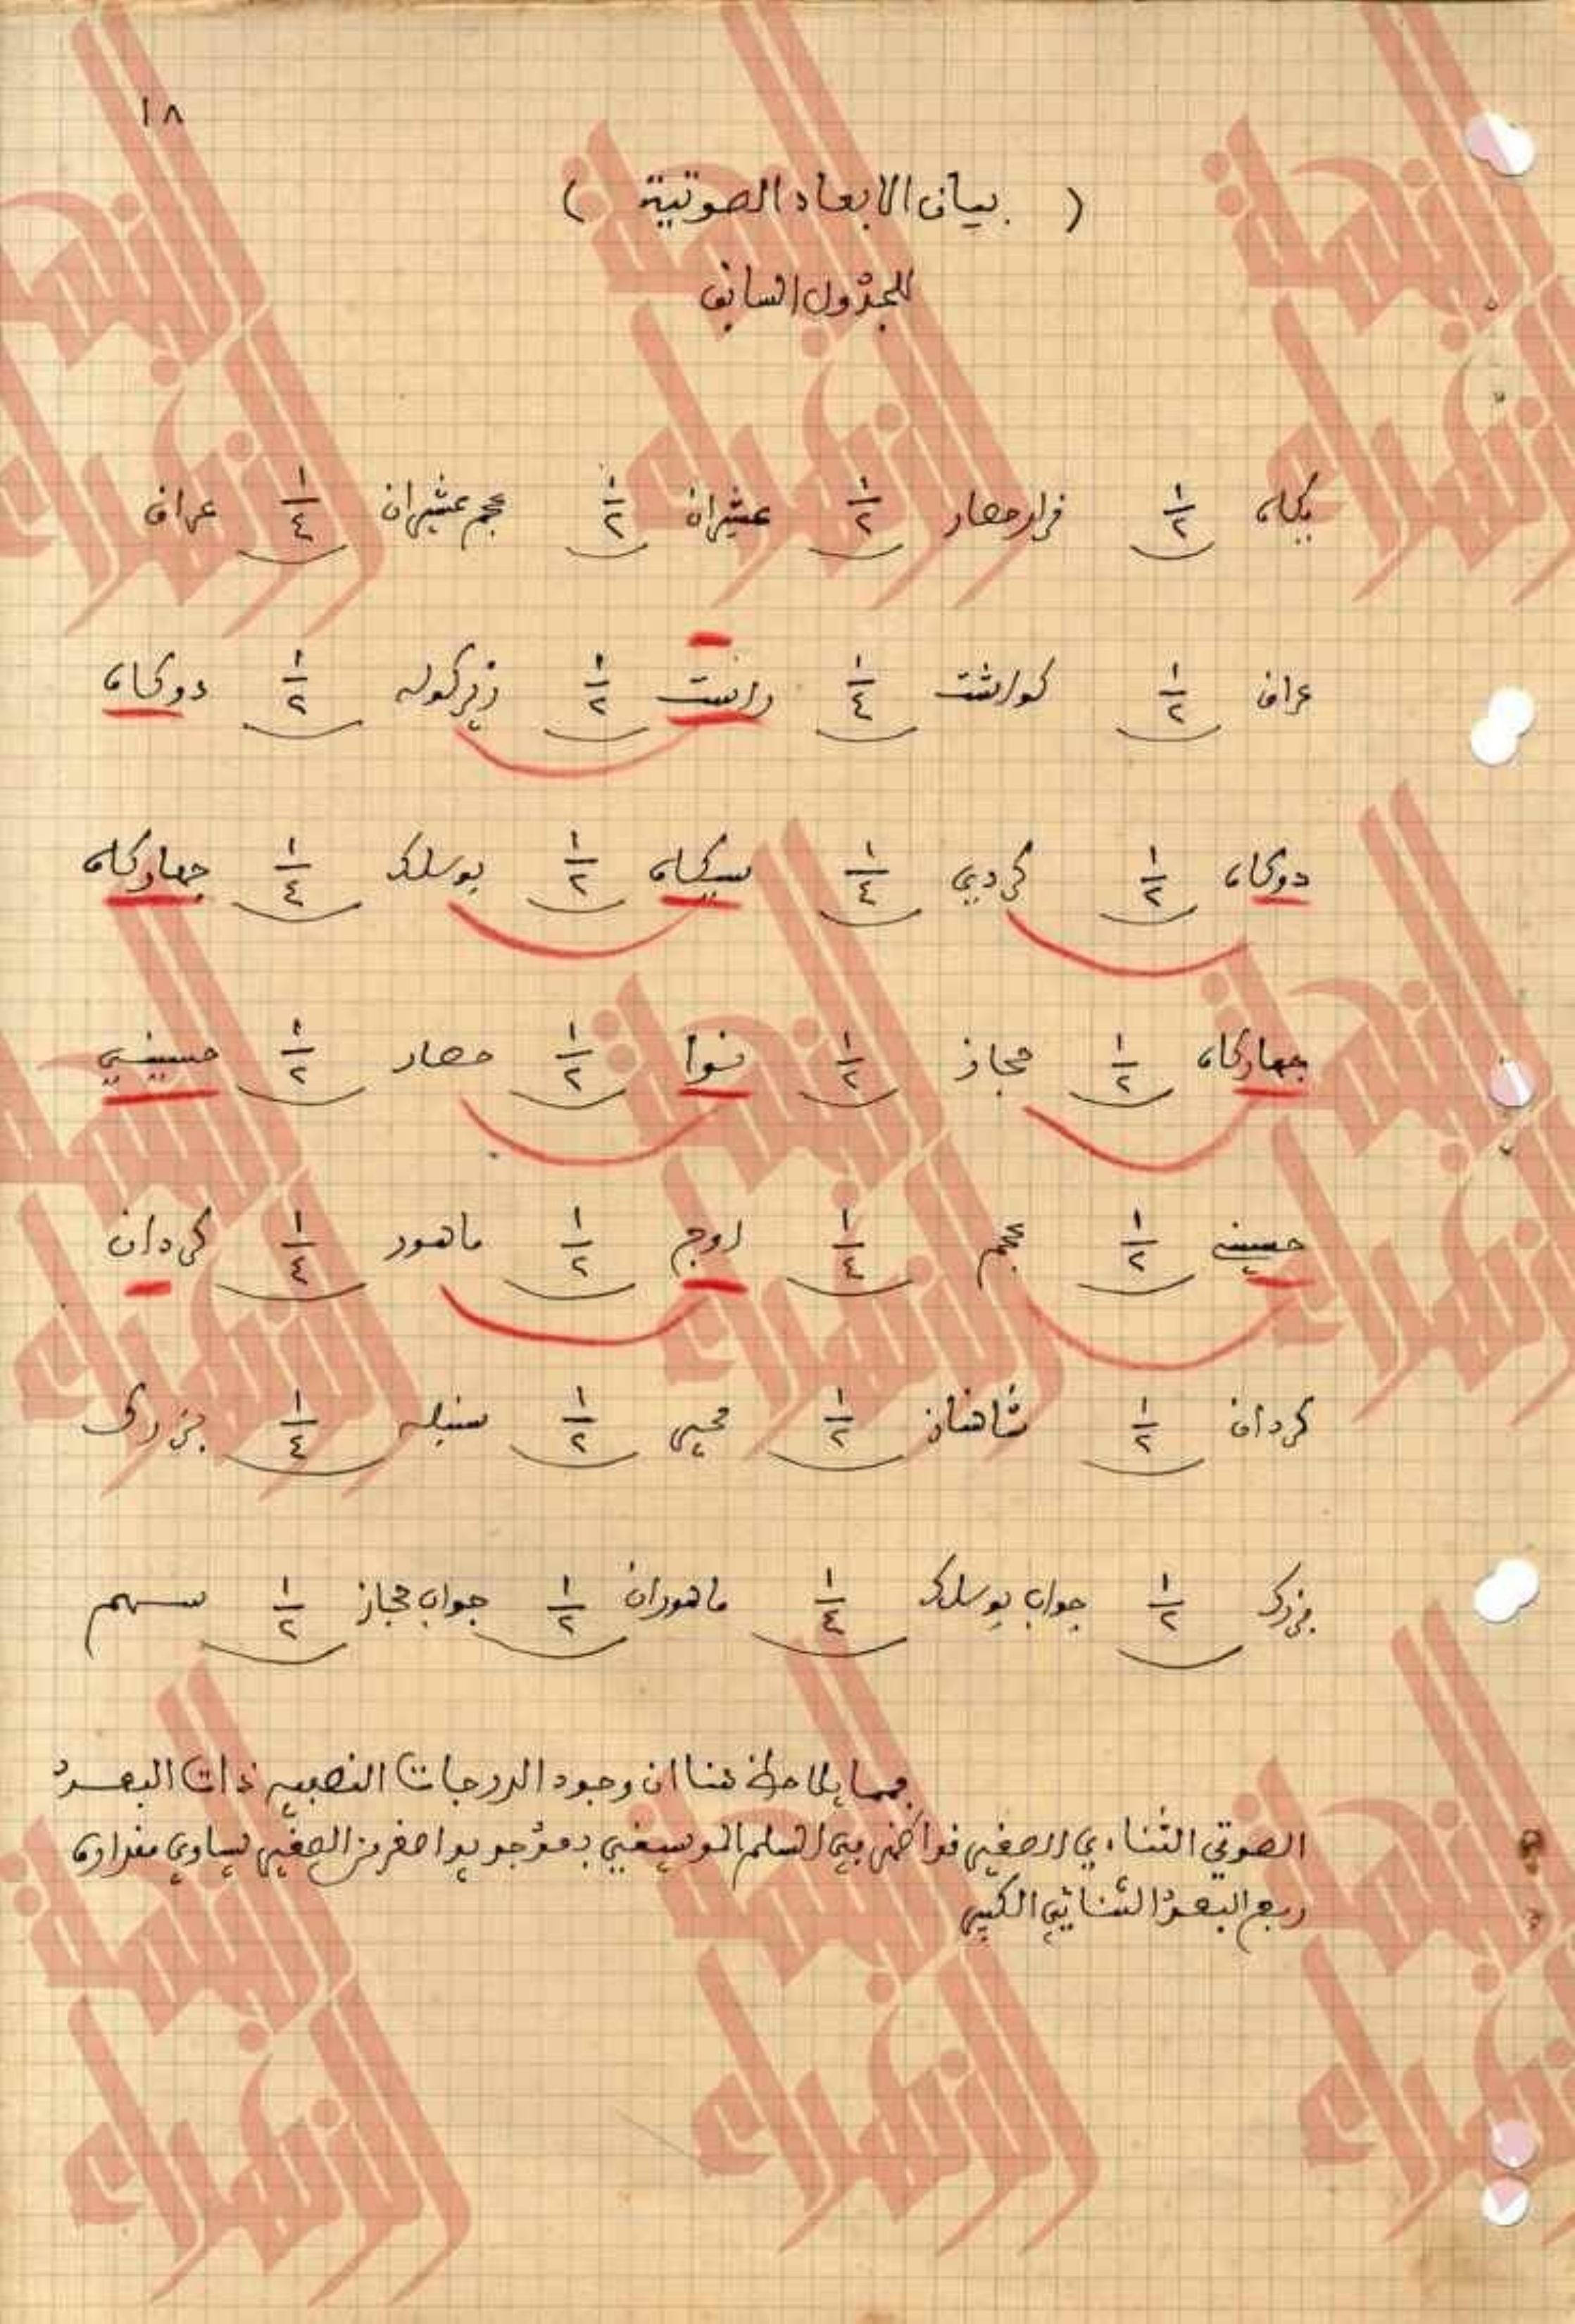 ١٨
( بيان الابعاد الصوتية )
للجدول السابق
يكاه ١/٢ قرار حصار ١/٢ عشيران ١/٢ عجم عشيران ١/٤ عراق
عراق ١/٢ كواشت ١/٤ راست ١/٢ زيركوله ١/٢ دوكاه
دوكاه ١/٢ كردي ١/٤ سيكاه ١/٢ بوسلك ١/٤ جهاركاه
جهاركاه ١/٢ حجاز ١/٢ نوا ١/٢ حصار ١/٢ حسيني
حسيني ١/٢ عجم ١/٤ اوج ١/٢ ماهور ١/٤ كردان
كردان ١/٢ شاهناز ١/٢ محير ١/٢ سنبله ١/٤ بزرك
بزرك ١/٢ جواب بوسلك ١/٤ ماهوران ١/٢ جواب حجاز ١/٢ سهم
مما يلاحظ هنا ان وجود الدرجات ذات البعد
الصوتي الثنائي الصغير السلم الموسيقي اصغر من الصغير يساوي مقداره
ربع البعد الثنائي الكبير